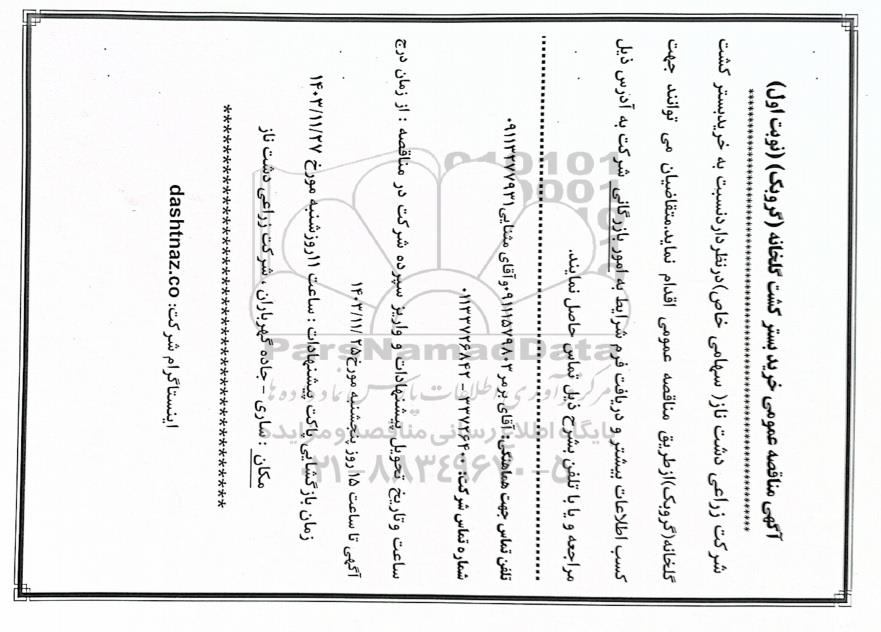 آگهی مناقصه عمومی خرید بستر کشت گلخانه (گروبک) (نوبت اول)
************************************************
شرکت زراعی دشت ناز( سهامی خاص)درنظرداردنسبت به خریدبستر کشت
گلخانه(گروبک)ازطریق مناقصه عمومی اقدام نماید.متقاضیان می توانند جهت
کسب اطلاعات بیشتر و دریافت فرم شرایط به امور بازرگانی شرکت به آدرس ذیل
مراجعه و یا با تلفن بشرح ذیل تماس حاصل نمایند.
تلفن تماس جهت هماهنگی: آقای برمر ۰۹۱۱۱۵۷۹۸۰۳وآقای مثنایی۰۹۱۱۳۲۷۷۹۳۱
شماره تماس شرکت: ۳۳۷۲۶۴۰۰ – ۰۱۱۳۳۷۲۶۸۴۲
ساعت وتاریخ تحویل پیشنهادات و واریز سپرده شرکت در مناقصه : از زمان درج
آگهی تا ساعت ۱۵ روز پنجشنبه مورخ۱۴۰۳/۱۱/۲۵
زمان بازگشایی پاکت پیشنهادات : ساعت ۱۱روزشنبه مورخ ۱۴۰۳/۱۱/۲۷
مکان : ساری – جاده گهرباران . شرکت زراعی دشت ناز
************************************************
اینستاگرام شرکت: dashtnaz.co
ParsNamadData
پایگاه اطلاع رسانی مناقصه و مزایده
۰۲۱-۸۸۳۴۹۶۷۰-۵